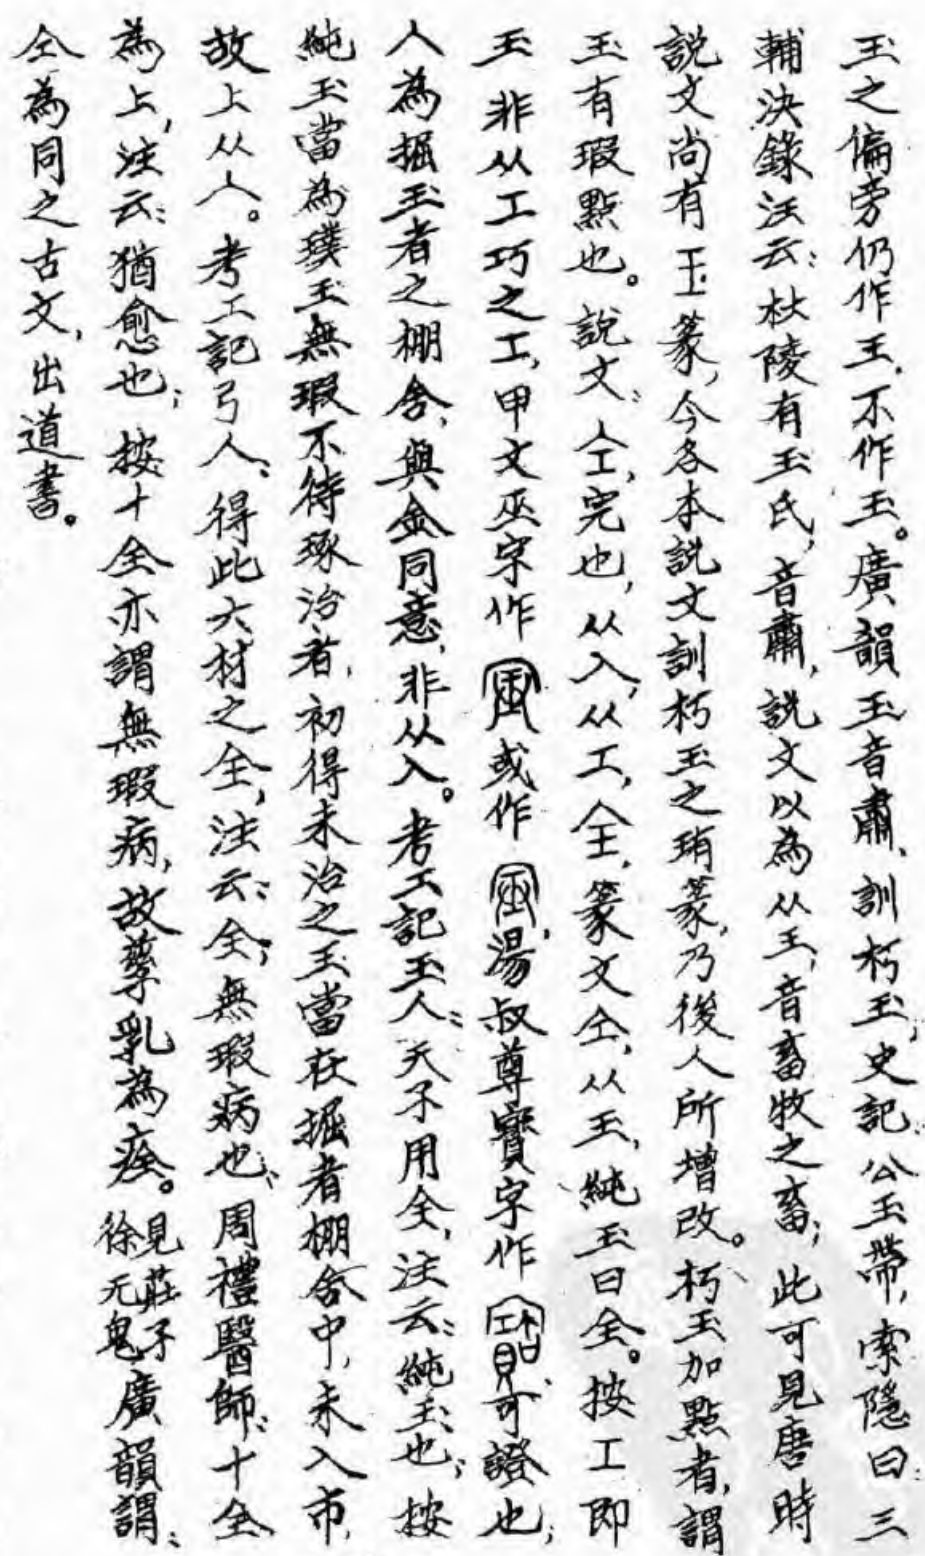 玉之偏旁仍作王,不作玉。廣韻玉音肅、訓朽玉,史記:公玉帶,索隱曰:三
輔決錄注云:杜陵有玉氏,音肅,說文以為从王,音畜牧之畜;此可見唐時
說文尚有玉篆,今各本說文訓朽玉之珛篆,乃後人所增改。朽玉加點者,謂
玉有瑕點也。說文:仝,完也,从入,从工,全,篆文仝,从玉,純玉曰全。按工即
玉非从工巧之工,甲文巫字作或作,湯叔尊寶字作可證也;
人為掘玉者之棚舍,與金同意,非从入。考工記玉人:天子用全,注云:純玉也;按
純玉當為璞玉無瑕不待琢治者,初得未治之玉當在掘者棚舍中,未入市,
故上从人。考工記弓人:得此六材之全,注云:全,無瑕病也,周禮醫師:十全
為上,注云:猶愈也;按十全亦謂無瑕病,故孳乳為痊。見莊子徐无鬼廣韻謂:
仝為同之古文,出道書。